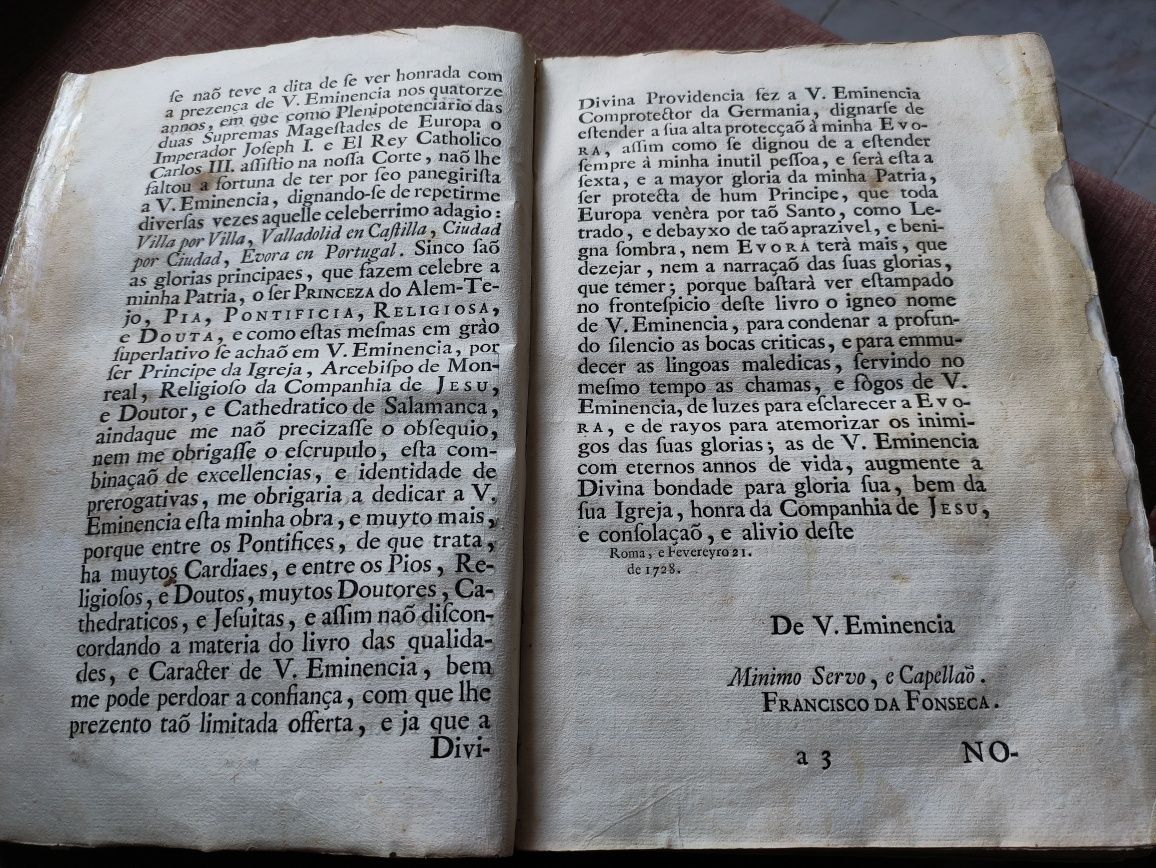 ſe naõ teve a dita de ſe ver honrada com
a prezença de V. Eminencia nos quatorze
annos, em que como Plenipotenciario das
duas Supremas Mageſtades de Europa o
Imperador Joſeph I. e El Rey Catholico
Carlos III. aſſiſtio na noſſa Corte, naõ lhe
faltou a fortuna de ter por ſeo panegiriſta
a V. Eminencia, dignando-ſe de repetirme
diverſas vezes aquelle celeberrimo adagio:
Villa por Villa, Valladolid en Caſtilla, Ciudad
por Ciudad, Evora en Portugal. Sinco ſaõ
as glorias principaes, que fazem celebre a
minha Patria, o ſer PRINCEZA do Alem-Te-
jo, PIA, PONTIFICIA, RELIGIOSA,
e DOUTA, e como eſtas meſmas em grào
ſuperlativo ſe achaõ em V. Eminencia, por
ſer Principe da Igreja, Arcebiſpo de Mon-
real, Religioſo da Companhia de JESU,
e Doutor, e Cathedratico de Salamanca,
aindaque me naõ precizaſſe o obſequio,
nem me obrigaſſe o eſcrupulo, eſta com-
binaçaõ de excellencias, e identidade de
prerogativas, me obrigaria a dedicar a V.
Eminencia eſta minha obra, e muyto mais,
porque entre os Pontifices, de que trata,
ha muytos Cardiaes, e entre os Pios, Re-
ligioſos, e Doutos, muytos Doutores, Ca-
thedraticos, e Jeſuitas, e aſſim naõ diſcon-
cordando a materia do livro das qualida-
des, e Caracter de V. Eminencia, bem
me pode perdoar a confiança, com que lhe
prezento taõ limitada offerta, e ja que a
Divi-
Divina Providencia fez a V. Eminencia
Comprotector da Germania, dignarſe de
eſtender a ſua alta protecçaõ à minha EVO-
RA, aſſim como ſe dignou de a eſtender
ſempre à minha inutil peſſoa, e ſerà eſta a
ſexta, e a mayor gloria da minha Patria,
ſer protecta de hum Principe, que toda
Europa venèra por taõ Santo, como Le-
trado, e debayxo de taõ aprazivel, e beni-
gna ſombra, nem EVORA terà mais, que
dezejar, nem a narraçaõ das ſuas glorias,
que temer; porque baſtarà ver eſtampado
no fronteſpicio deſte livro o igneo nome
de V. Eminencia, para condenar a profun-
do ſilencio as bocas criticas, e para emmu-
decer as lingoas maledicas, ſervindo no
meſmo tempo as chamas, e fògos de V.
Eminencia, de luzes para eſclarecer a EVO-
RA, e de rayos para atemorizar os inimi-
gos das ſuas glorias; as de V. Eminencia
com eternos annos de vida, augmente a
Divina bondade para gloria ſua, bem da
ſua Igreja, honra da Companhia de JESU,
e conſolaçaõ, e alivio deſte
Roma, e Fevereyro 21.
de 1728.
De V. Eminencia
Minimo Servo, e Capellaõ.
FRANCISCO DA FONSECA.
a 3 NO-